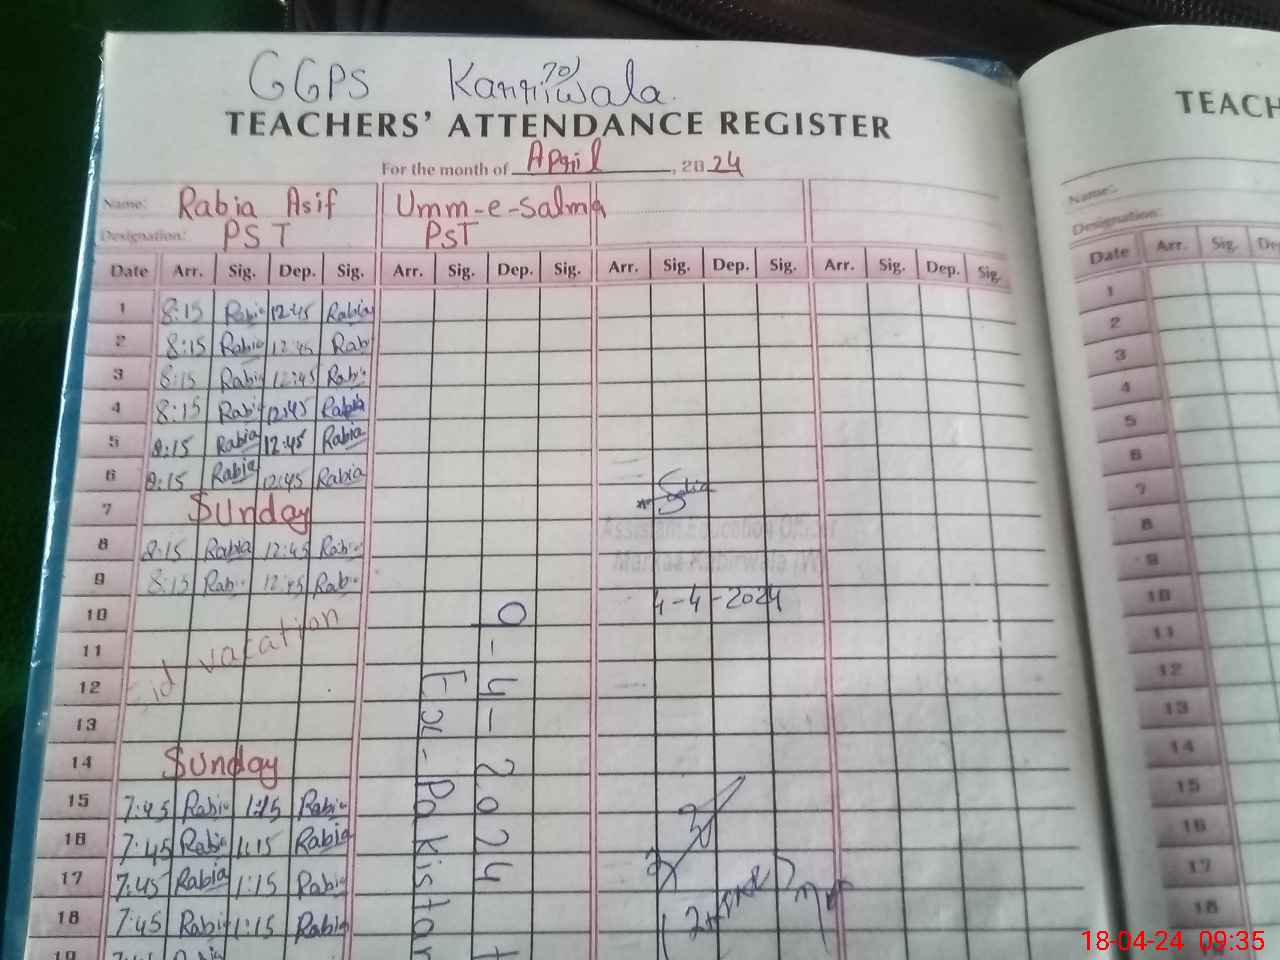 GGPS Kanniwala
TEACHERS' ATTENDANCE REGISTER
For the month of April, 2024
Name: Rabia Asif Umm-e-Salma
Designation: PST PST
Date Arr. Sig. Dep. Sig. Arr. Sig. Dep. Sig. Arr. Sig. Dep. Sig. Arr. Sig. Dep. Sig.
1 8:15 Rabia 12:45 Rabia
2 8:15 Rabia 12:45 Rab
3 8:15 Rabi 12:45 Rabi
4 8:15 Rabi 12:45 Rabia
5 8:15 Rabia 12:45 Rabia
6 8:15 Rabia 12:45 Rabia
7 Sunday
8 8:15 Rabia 12:45 Rabi
Assistant Education Officer
9 8:15 Rabi 12:45 Rab
Markaz Kabirwala (W)
10 4-4-2024
11 Eid vacation
12
13
14 Sunday
15 7:45 Rabi 1:15 Rabi
16 7:45 Rabi 1:15 Rabia
17 7:45 Rabia 1:15 Rabi
18 7:45 Rabi 1:15 Rabia
19
Ex-Pakistan
-4-2024
TEACH
Name:
Designation:
Date Arr. Sig. De
1
2
3
4
5
6
7
8
9
10
11
12
13
14
15
16
17
18
18-04-24 09:35